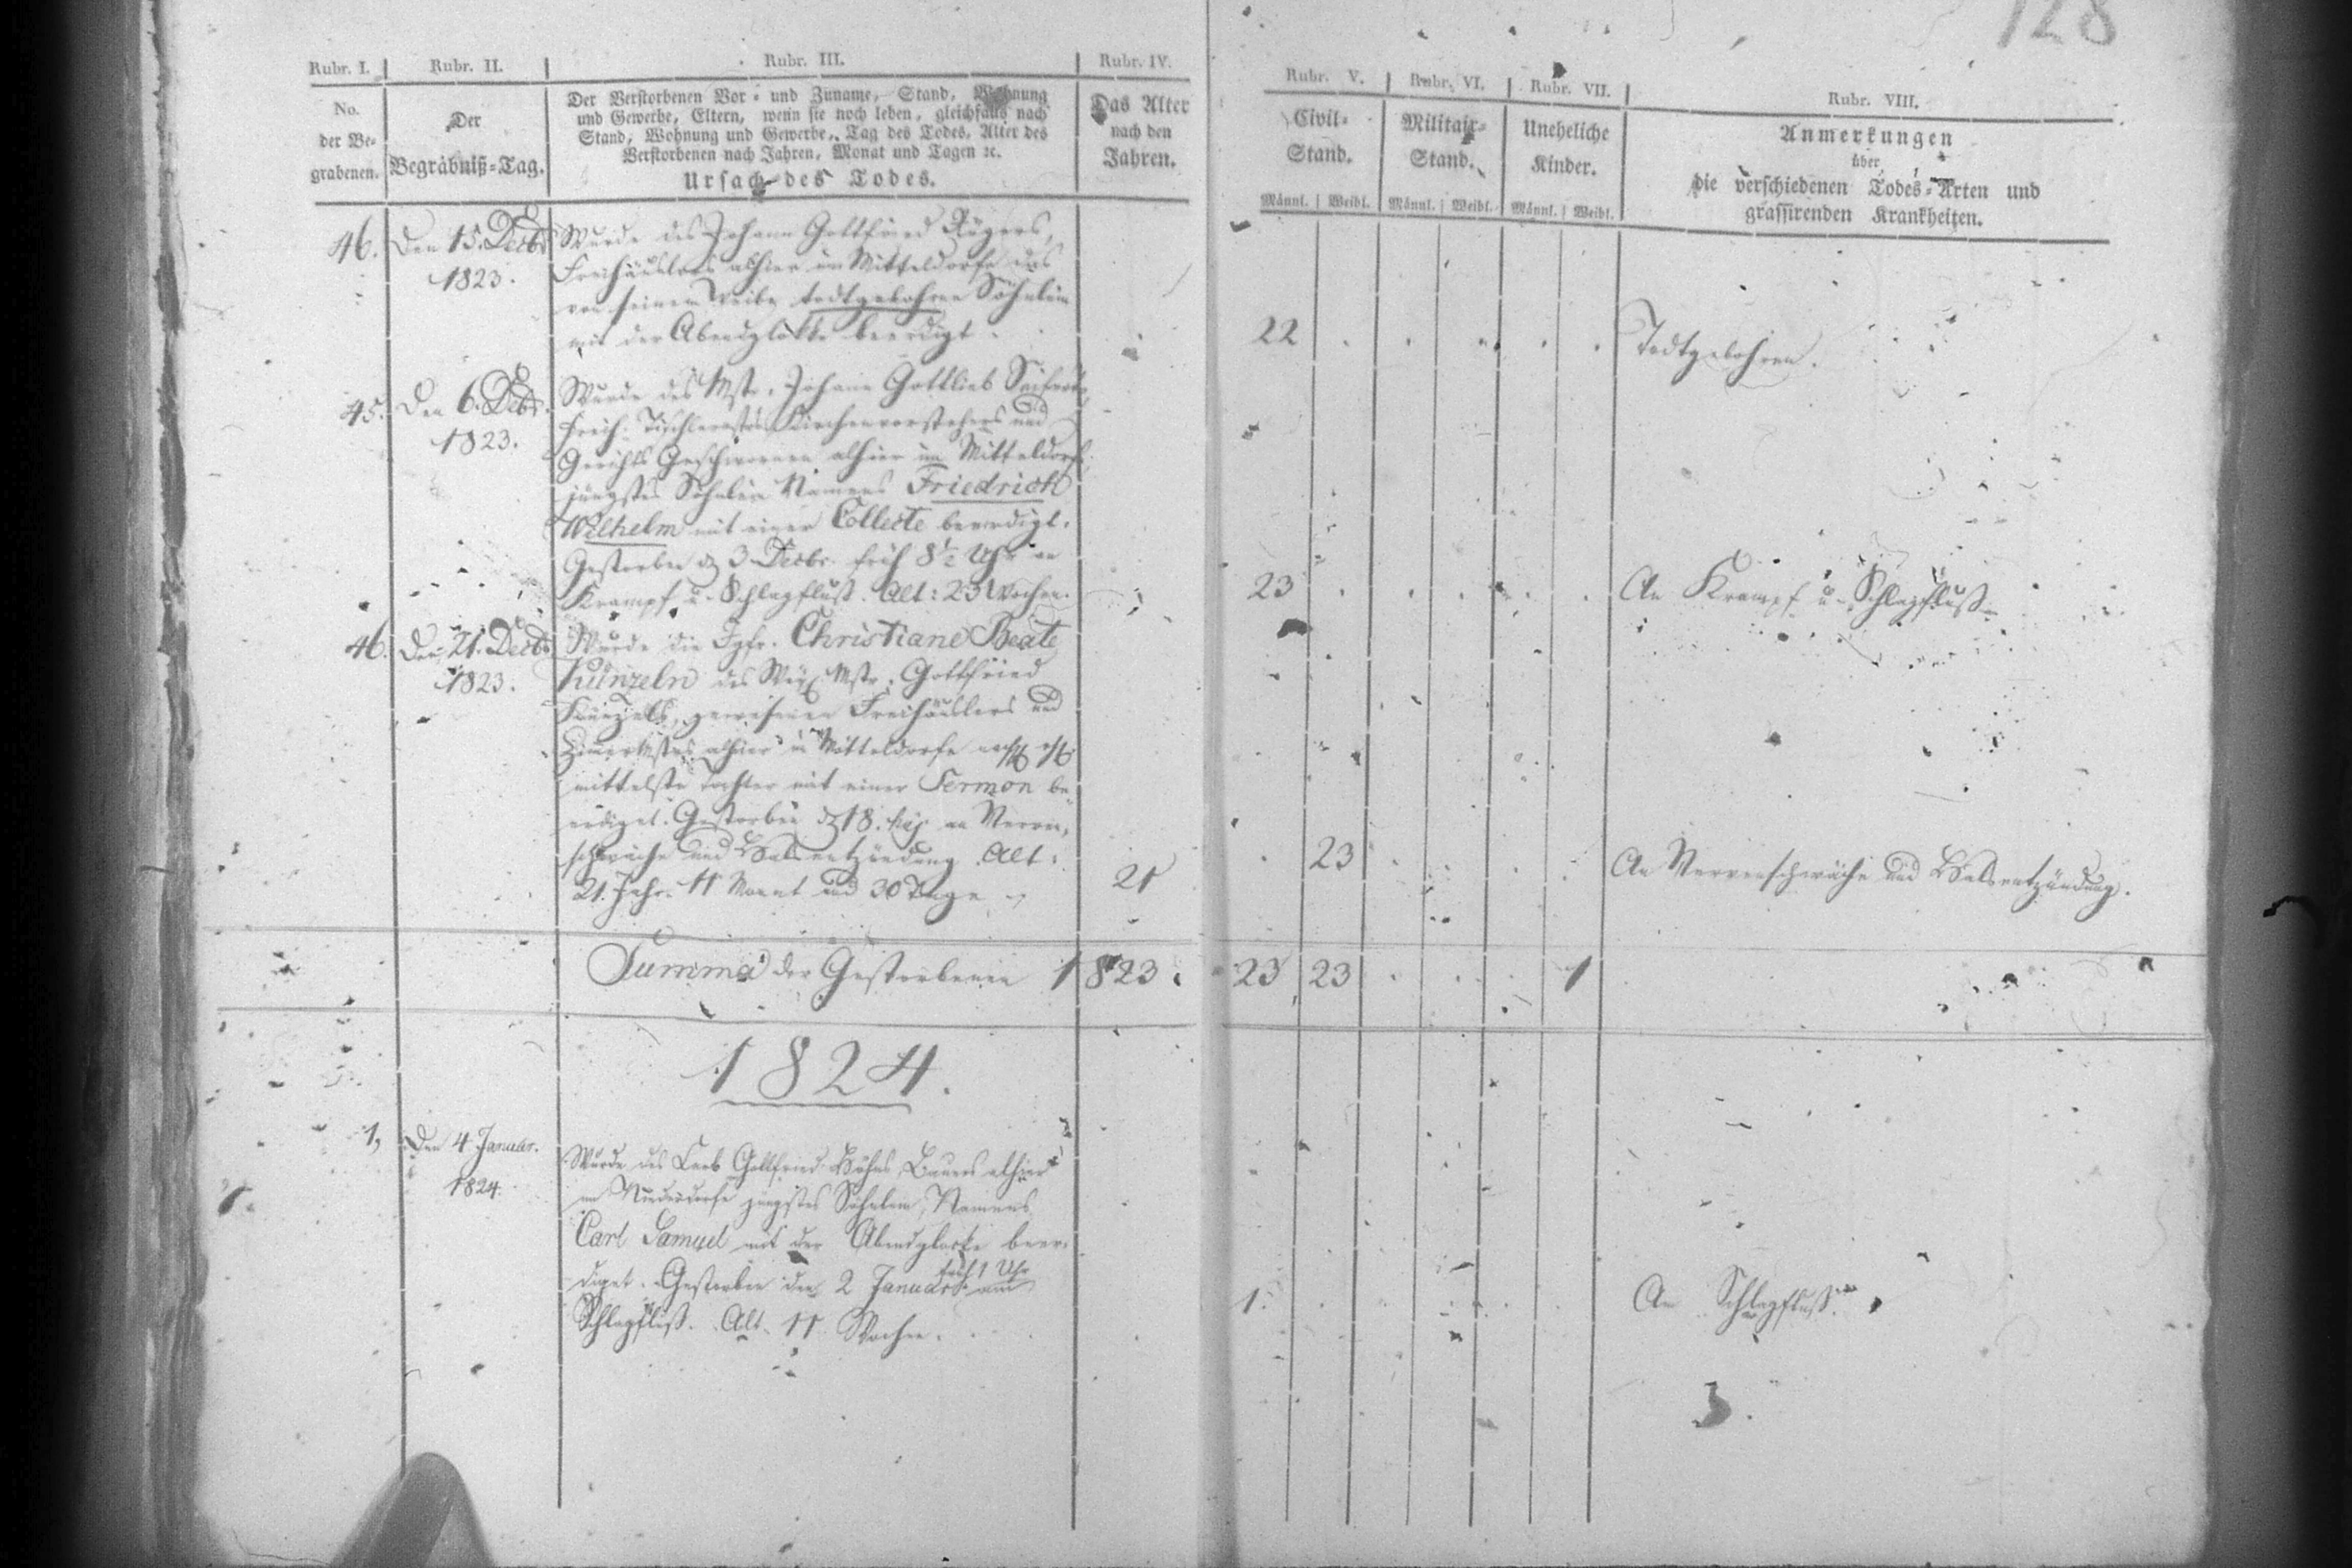 128
Rubr. I. Rubr. II. Rubr. III. Rubr. IV. Rubr. V. Rubr. VI. Rubr. VII. Rubr. VIII.
No.
der Be-
grabenen.
Der
Begräbniß-Tag.
Der Verstorbenen Vor- und Zuname, Stand, Wohnung
und Gewerbe, Eltern, wenn sie noch leben, gleichfalls nach
Stand, Wohnung und Gewerbe, Tag des Todes, Alter des
Verstorbenen nach Jahren, Monat und Tagen ꝛc.
Ursach des Todes.
Das Alter
nach den
Jahren.
Civil-
Stand.
Männl. Weibl.
Militair-
Stand.
Männl. Weibl.
Uneheliche
Kinder.
Männl. Weibl.
Anmerkungen
über
die verschiedenen Todes-Arten und
grassirenden Krankheiten.
46. Den 15. Decbr
1823.
Wurde des Johann Gottfried
Freihäuslers alhier im Mitteldorfe das
von seinem Weibe todtgebohrne Söhnlein
mit der Abendglocke beerdigt.
22
Todtgebohren.
45. Den 6. Decbr.
1823.
Wurde des Mstr. Johann Gottlieb Seiferts
Freih. Kirchenvorstehers und
Gerichts Geschwornen alhier im Mitteldorfe
jüngstes Söhnlein Namens Friedrich
Wilhelm mit einer Collecte beerdigt.
Gestorben d. 3 Decbr. früh 8½ Uhr an
Krampf u. Schlagfluß. Alt: 23 Wochen.
23
An Krampf u. Schlagfluß
46. Den 21. Decbr
1823.
Wurde die Igfr. Christiane Beate
Künzeln des Mstr. Gottfried
Künzels, gewesenen Freihäuslers und
alhier im Mitteldorfe
mittelste Tochter mit einer Sermon be-
erdiget. Gestorben d. 18. huj. an Nerven-
schwäche und Halsentzündung. Alt:
21. Jahr 11 Monat und 30 Tage
21
23
An Nervenschwäche und Halsentzündung.
Summa der Gestorbenen 1823. 23 23 1
1824.
1, Den 4 Januar.
1824.
Wurde des Carl Gottfried Höhns, Bauers alhier
im Niederdorfe jüngstes Söhnlein, Namens
Carl Samuel mit der Abendglocke beer-
diget. Gestorben den 2 Januar früh 1 Uhr am
Schlagfluß. Alt. 11 Wochen.
1.
An Schlagfluß.